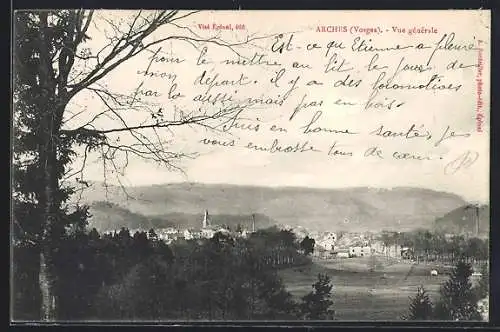 Visé Épinal, 608
ARCHES (Vosges). - Vue générale
Est-ce qu'Etienne a pleuré
pour le mettre au lit le jour de
mon départ. il y a des locomotives
par là aussi mais pas en bois.
Je suis en bonne santé, je
vous embrasse tous de cœur.